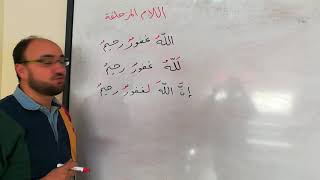 اللام المزحلقة
اللّٰهُ غفورٌ رحيمٌ
لَلّٰهُ غفورٌ رحيمٌ
إنَّ اللّٰهَ لغفورٌ رحيمٌ